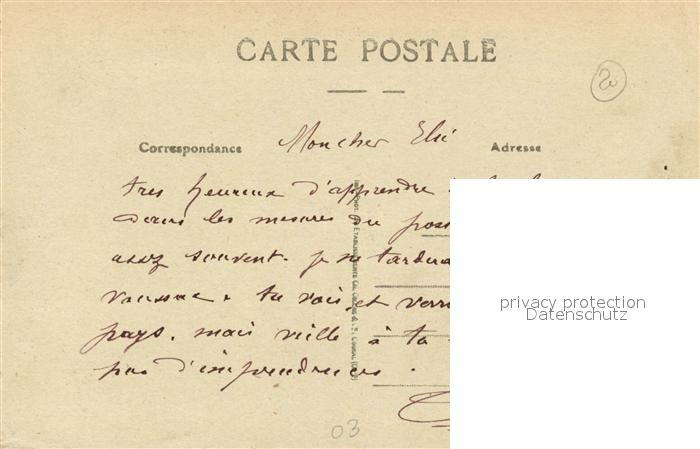 CARTE POSTALE
20
Correspondance
Mon cher Elie
Adresse
tres heureux d'apprendre
dans les mesures du poss
assez souvent. je ne tardera
tu vois et verra
pays. mais veille à ta
pas d'imprudences.
privacy protection
Datenschutz
03